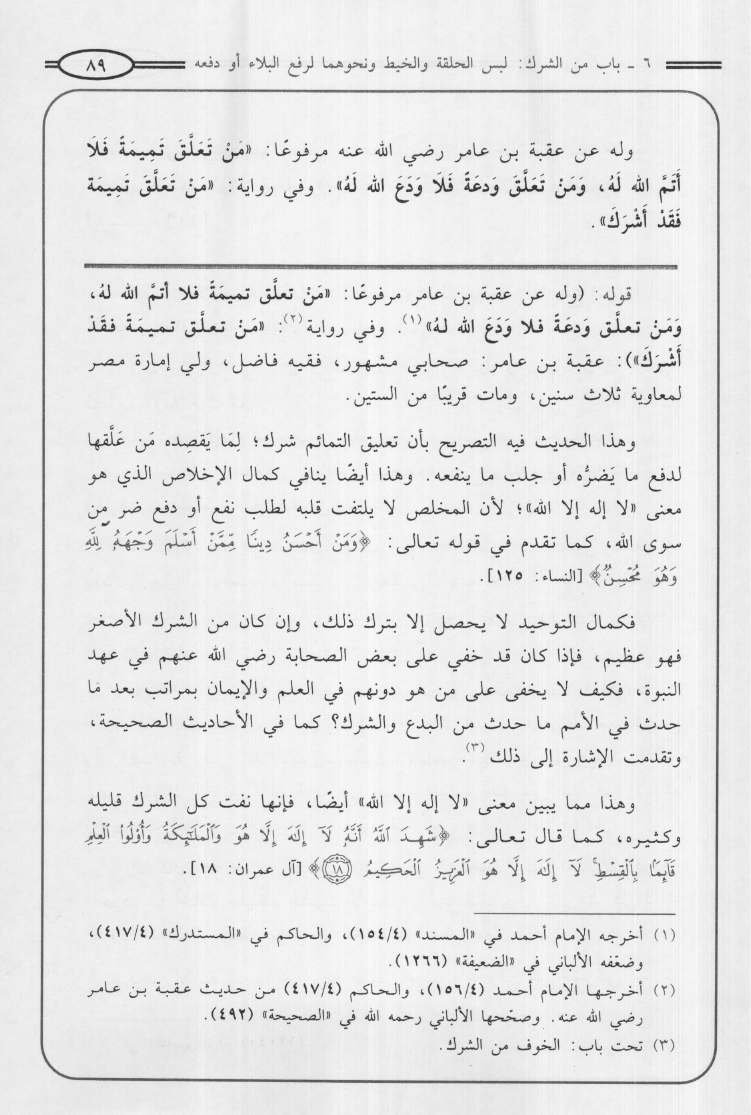 ٦ ـ باب من الشرك: لبس الحلقة والخيط ونحوهما لرفع البلاء أو دفعه
٨٩
وله عن عقبة بن عامر رضي الله عنه مرفوعًا: «مَنْ تَعَلَّقَ تَمِيمَةً فَلَا
أَتَمَّ الله لَهُ، وَمَنْ تَعَلَّقَ وَدعَةً فَلَا وَدَعَ الله لَهُ». وفي رواية: «مَنْ تَعَلَّقَ تَمِيمَة
فَقَدْ أَشْرَكَ».
قوله: (وله عن عقبة بن عامر مرفوعًا: «مَنْ تعلَّق تميمَةً فلا أتمَّ الله لهُ،
وَمَنْ تعلَّق وَدعَةً فلا وَدَعَ الله لهُ»(١). وفي رواية(٢): «مَنْ تعلَّق تميمَةً فقَدْ
أَشْرَكَ»): عقبة بن عامر: صحابي مشهور، فقيه فاضل، ولي إمارة مصر
لمعاوية ثلاث سنين، ومات قريبًا من الستين.
وهذا الحديث فيه التصريح بأن تعليق التمائم شرك؛ لِمَا يَقصِده مَن عَلَّقها
لدفع ما يَضرُّه أو جلب ما ينفعه. وهذا أيضًا ينافي كمال الإخلاص الذي هو
معنى «لا إله إلا الله»؛ لأن المخلص لا يلتفت قلبه لطلب نفع أو دفع ضر من
سوى الله، كما تقدم في قوله تعالى: ﴿وَمَنْ أَحْسَنُ دِينًا مِّمَّنْ أَسْلَمَ وَجْهَهُۥ لِلَّهِ
وَهُوَ مُحْسِنٌ﴾ [النساء: ١٢٥].
فكمال التوحيد لا يحصل إلا بترك ذلك، وإن كان من الشرك الأصغر
فهو عظيم، فإذا كان قد خفي على بعض الصحابة رضي الله عنهم في عهد
النبوة، فكيف لا يخفى على من هو دونهم في العلم والإيمان بمراتب بعد مَا
حدث في الأمم ما حدث من البدع والشرك؟ كما في الأحاديث الصحيحة،
وتقدمت الإشارة إلى ذلك (٣).
وهذا مما يبين معنى «لا إله إلا الله» أيضًا، فإنها نفت كل الشرك قليله
وكثيره، كما قال تعالى: ﴿شَهِدَ ٱللَّهُ أَنَّهُۥ لَآ إِلَٰهَ إِلَّا هُوَ وَٱلْمَلَٰٓئِكَةُ وَأُو۟لُوا۟ ٱلْعِلْمِ
قَآئِمًۢا بِٱلْقِسْطِۚ لَآ إِلَٰهَ إِلَّا هُوَ ٱلْعَزِيزُ ٱلْحَكِيمُ ١٨﴾ [آل عمران: ١٨].
(١) أخرجه الإمام أحمد في «المسند» (١٥٤/٤)، والحاكم في «المستدرك» (٤١٧/٤)،
وضعّفه الألباني في «الضعيفة» (١٢٦٦).
(٢) أخرجها الإمام أحمد (١٥٦/٤)، والحاكم (٤١٧/٤) من حديث عقبة بن عامر
رضي الله عنه. وصحّحها الألباني رحمه الله في «الصحيحة» (٤٩٢).
(٣) تحت باب: الخوف من الشرك.